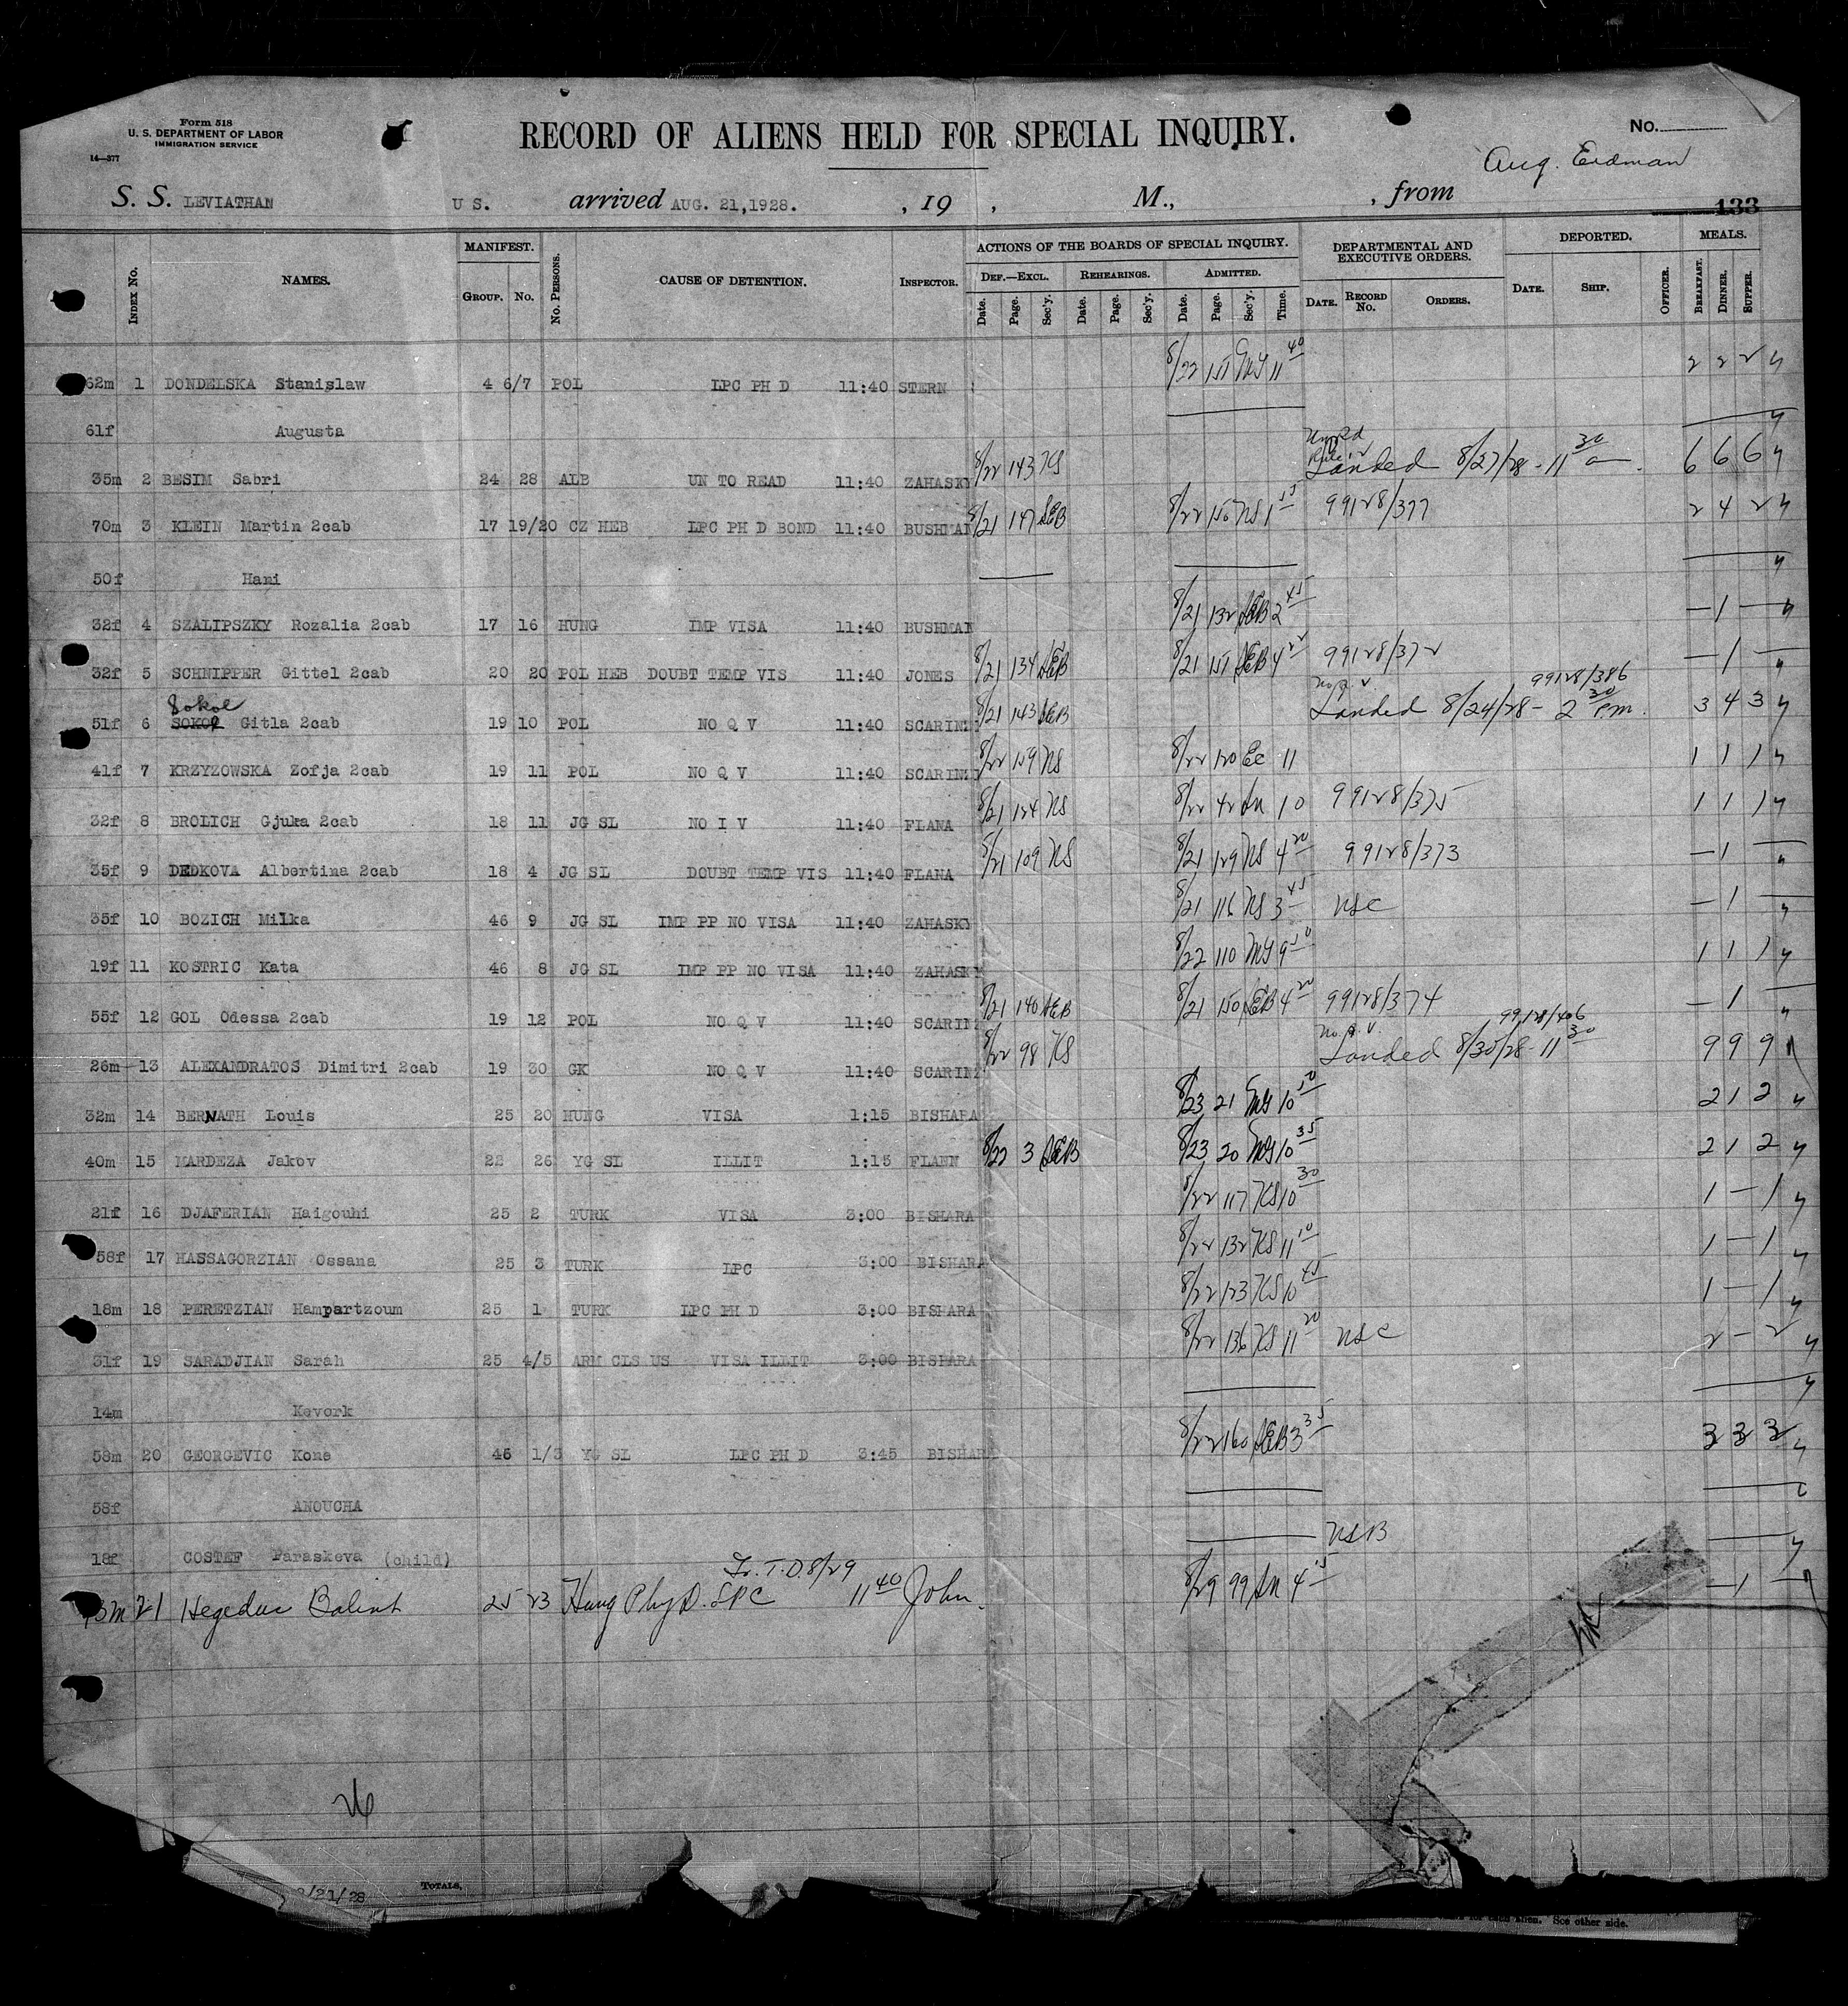 Form 518
U. S. DEPARTMENT OF LABOR
IMMIGRATION SERVICE
14—377
RECORD OF ALIENS HELD FOR SPECIAL INQUIRY.
No.
Aug. Erdman
S. S. LEVIATHAN U S. arrived AUG. 21,1928. , 19 , M., , from
133
INDEX No. NAMES. MANIFEST. GROUP. No. No. PERSONS. CAUSE OF DETENTION. INSPECTOR. ACTIONS OF THE BOARDS OF SPECIAL INQUIRY. DEPARTMENTAL AND EXECUTIVE ORDERS. DEPORTED. MEALS.
DEF.—EXCL. REHEARINGS. ADMITTED.
Date. Page. Sec'y. Date. Page. Sec'y. Date. Page. Sec'y. Time. DATE. RECORD No. ORDERS. DATE. SHIP. OFFICER. BREAKFAST. DINNER. SUPPER.
62m 1 DONDELSKA Stanislaw 4 6/7 POL LPC PH D 11:40 STERN 8/22 151 11 40 2 2 2
61f Augusta
35m 2 BESIM Sabri 24 28 ALB UN TO READ 11:40 ZAHASKY 8/22 143 KS Landed 8/27/28 - 11 30 a 6 6 6
70m 3 KLEIN Martin 2cab 17 19/20 CZ HEB LPC PH D BOND 11:40 BUSHMAN 8/21 147 SEB 8/22 150 NS 1 15 99128/377 2 4 2
50f Hani
32f 4 SZALIPSZKY Rozalia 2cab 17 16 HUNG IMP VISA 11:40 BUSHMAN 8/21 132 SEB 2 45 — 1 —
32f 5 SCHNIPPER Gittel 2cab 20 20 POL HEB DOUBT TEMP VIS 11:40 JONES 8/21 134 SEB 8/21 151 SEB 4 99128/372 — 1 —
Sokol
51f 6 SOKOL Gitla 2cab 19 10 POL NO Q V 11:40 SCARINZI 8/21 143 SEB Landed 8/24/28 - 2 30 P.m. 99128/386 3 4 3
41f 7 KRZYZOWSKA Zofja 2cab 19 11 POL NO Q V 11:40 SCARINZI 8/22 159 NS 8/22 120 Ec 11 1 1 1
32f 8 BROLICH Gjuka 2cab 18 11 JG SL NO I V 11:40 FLANA 8/21 124 NS 8/22 42 10 99128/375 1 1 1
35f 9 DEDKOVA Albertina 2cab 18 4 JG SL DOUBT TEMP VIS 11:40 FLANA 8/21 109 NS 8/21 129 NS 4 20 99128/373 — 1 —
35f 10 BOZICH Milka 46 9 JG SL IMP PP NO VISA 11:40 ZAHASKY 8/21 116 NS 3 45 NSC — 1 —
19f 11 KOSTRIC Kata 46 8 JG SL IMP PP NO VISA 11:40 ZAHASKY 8/22 110 9 50 1 1 1
55f 12 GOL Odessa 2cab 19 12 POL NO Q V 11:40 SCARINZ 8/21 140 SEB 8/21 150 SEB 4 20 99128/374 — 1 —
26m 13 ALEXANDRATOS Dimitri 2cab 19 30 GK NO Q V 11:40 SCARINZ 8/22 98 KS No. Q. V. Landed 8/30/28 - 11 30 99128/406 9 9 9
32m 14 BERNATH Louis 25 20 HUNG VISA 1:15 BISHARA 8/23 21 10 50 2 1 2
40m 15 MARDEZA Jakov 22 26 YG SL ILLIT 1:15 FLANN 8/22 3 SEB 8/23 20 10 35 2 1 2
21f 16 DJAFERIAN Haigouhi 25 2 TURK VISA 3:00 BISHARA 8/22 117 KS 10 30 1 — 1
58f 17 HASSAGORZIAN Ossana 25 3 TURK LPC 3:00 BISHARA 8/22 132 KS 11 10 1 — 1
18m 18 PERETZIAN Hampartzoum 25 1 TURK LPC PH D 3:00 BISHARA 8/22 123 KS 10 45 1 — 1
31f 19 SARADJIAN Sarah 25 4/5 ARM CLS US VISA ILLIT 3:00 BISHARA 8/22 136 KS 11 20 NSC 2 — 2
14m Kevork
58m 20 GEORGEVIC Kone 46 1/3 YG SL LPC PH D 3:45 BISHARA 8/22 160 SEB 3 35 3 3 3
58f ANOUCHA
18f COSTEF Paraskeva (child) NSB
Fr. T.D. 8/29
21 Hegedus Balint 25 23 Hung Phy D. LPC 11 40 John. 8/29 99 4 15 — 1 —
26
8/21/28 TOTALS.
See other side.